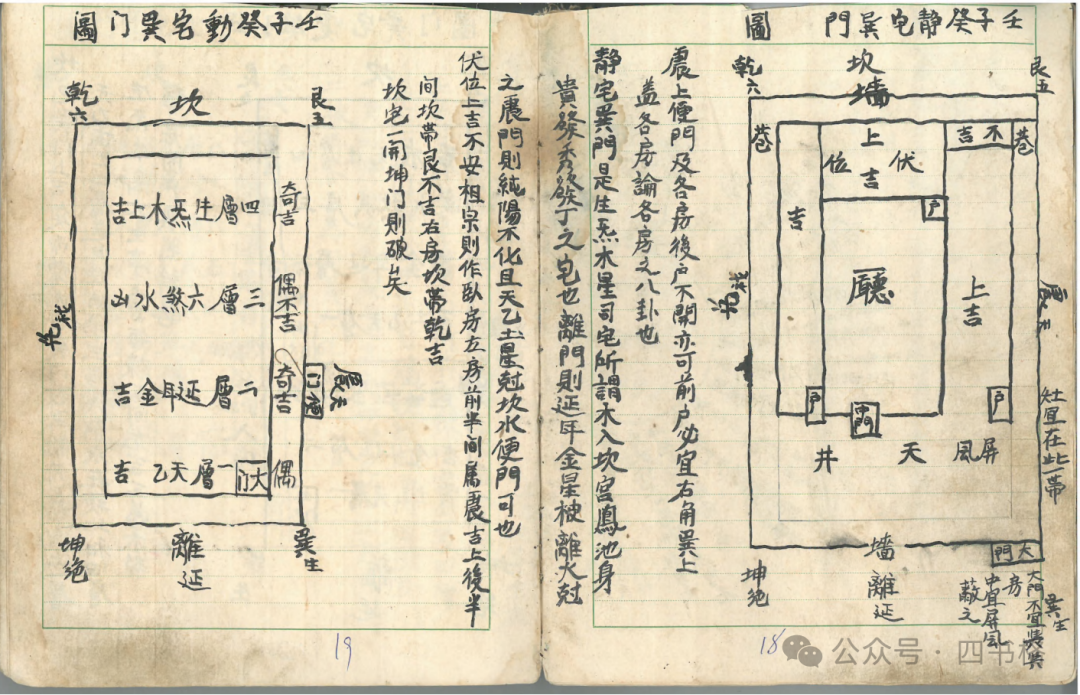 壬子癸静宅巽門圖
坎
墙
乾六
艮五
巷
巷
上吉
伏位
不吉
吉
戶
廳
上吉
震天
戶
中門
戶
天井
屏風
灶宜在此一帶
墙
離延
大門
坤绝
巽生
大門不宜裝
房中宜屏风蔽之
震上便门及各房後戶不開亦可前户必宜右角巽上
蓋各房論各房之八卦也
静宅巽门是生炁木星司宅所謂木入坎宮鳳池身
貴發秀發丁之宅也離門則延年金星被離火尅
18
公众号·四书
之震門則純陽不化且天乙土星尅坎水便門可也
伏位上吉不安祖宗則作卧房左房前半間属震吉上後半
间坎带艮不吉右房坎带乾吉
坎宅一開坤门則破矣
壬子癸動宅巽门圖
坎
乾六
艮五
四層生炁木上吉
奇吉
三層六煞水凶
偶不吉
二層延年金吉
奇吉
便门
震天
一層天乙吉
大门
偶
坤绝
離延
巽生
19